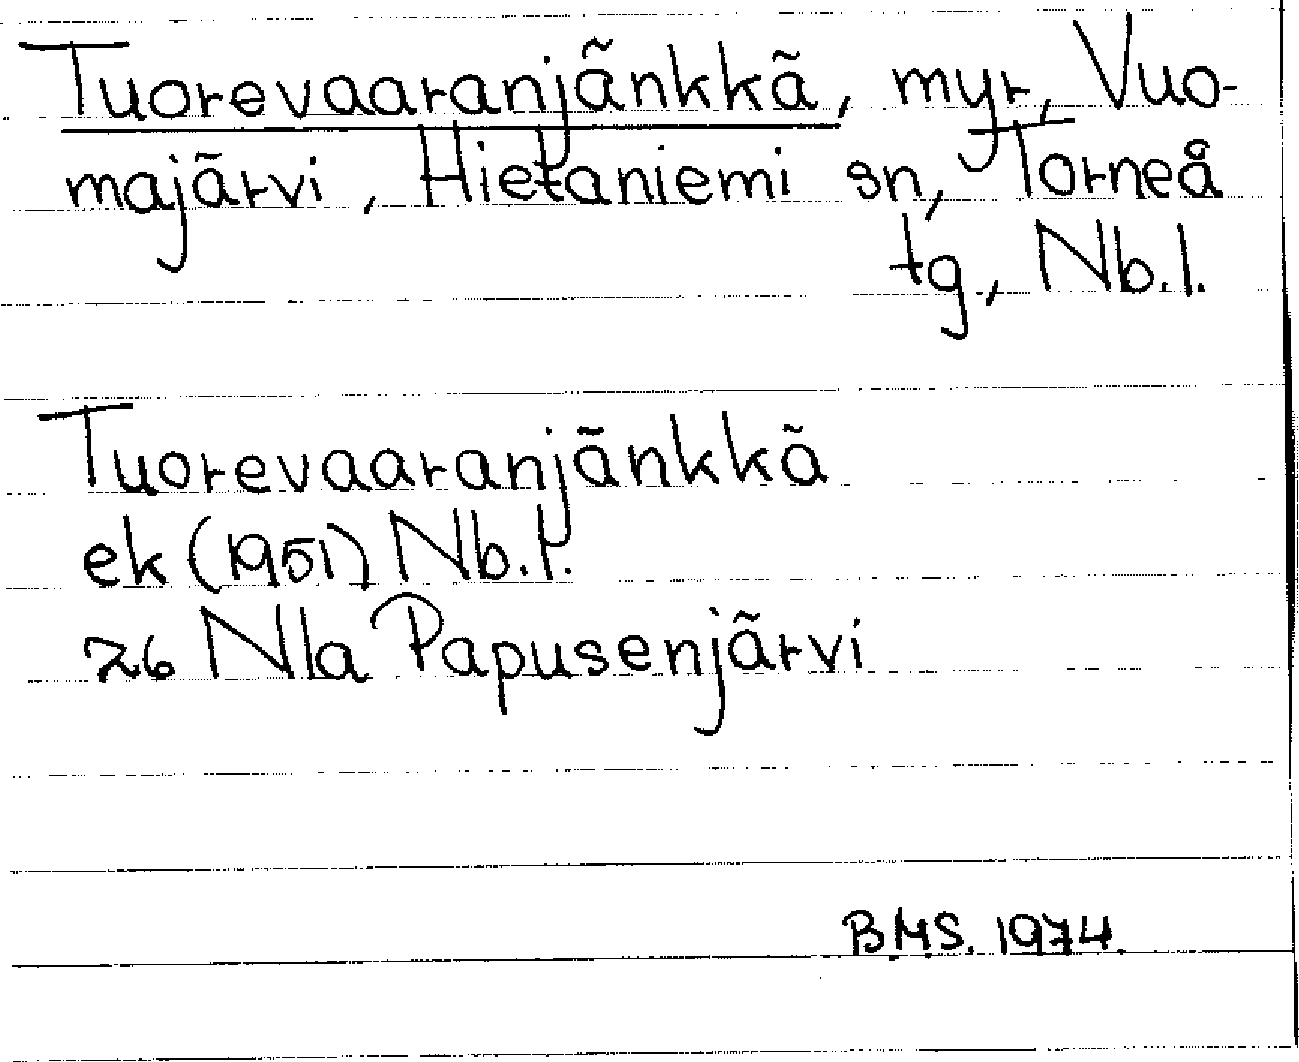 Tuorevaaranjänkkä, myr, Vuo-
majärvi, Hietaniemi sn, Torneå
tg, Nb.l.
Tuorevaaranjänkkä
ek (1951) Nb.l.
26 Nla Papusenjärvi
B.M.S. 1974.